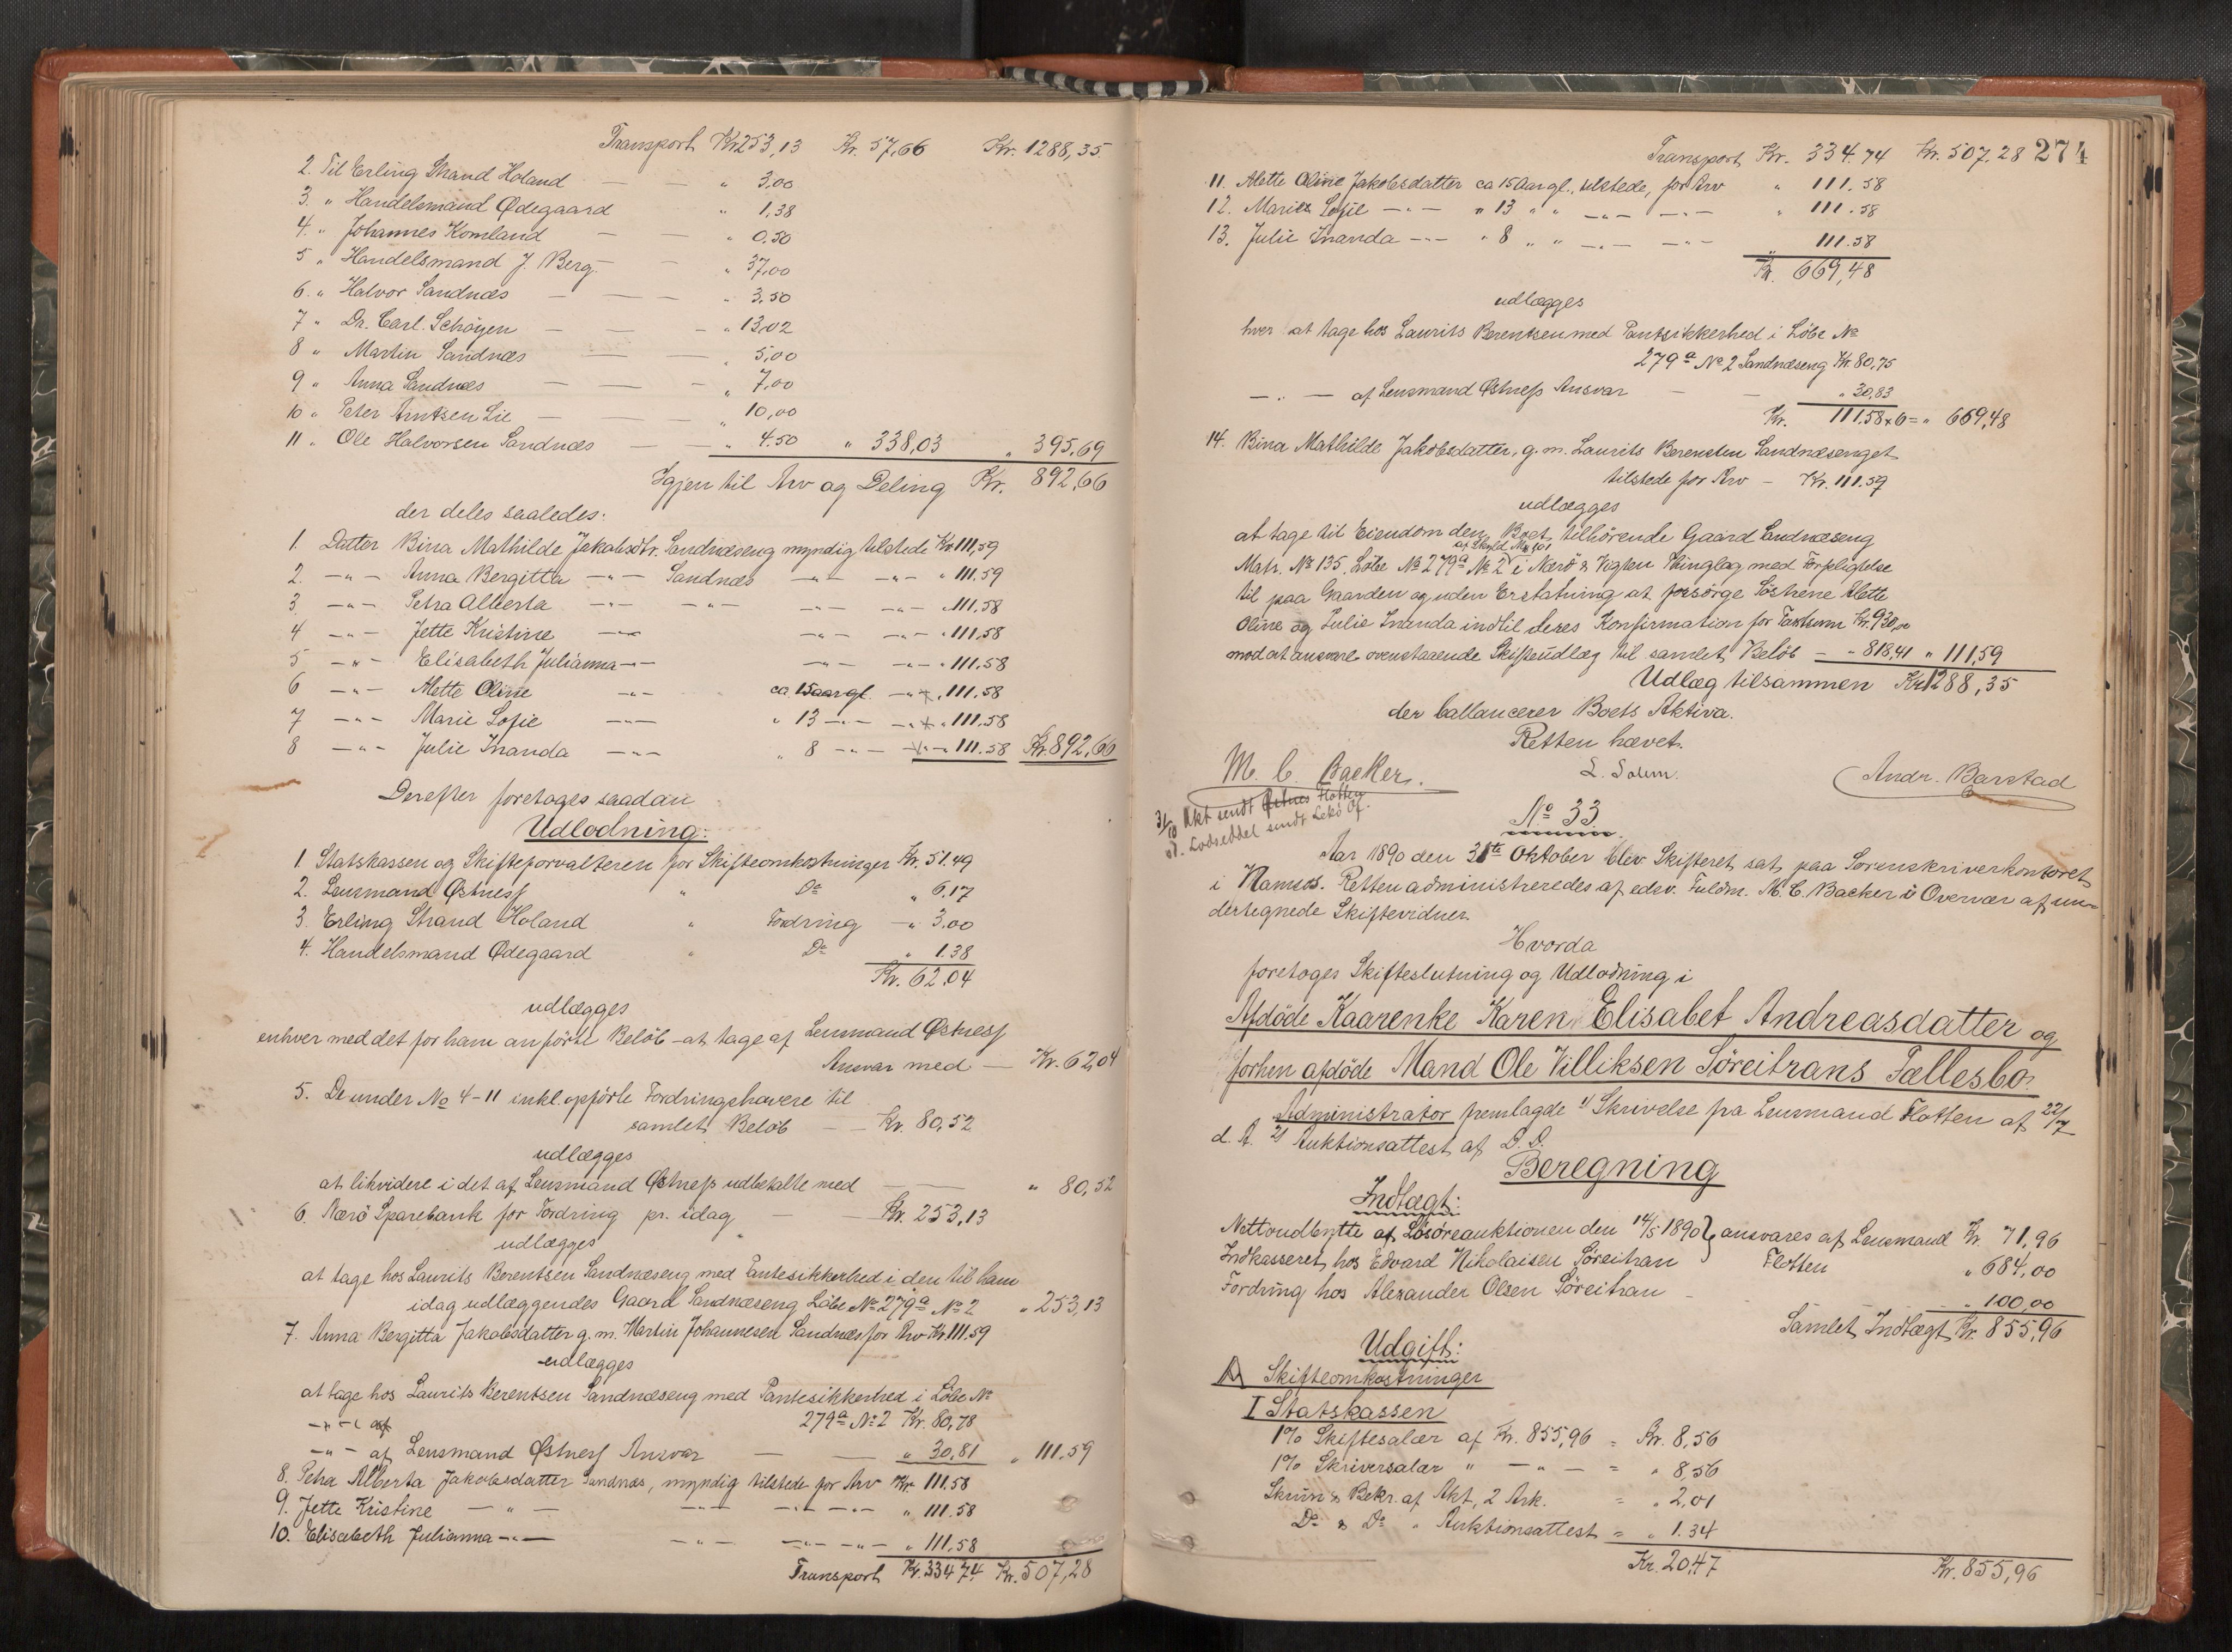 Transport Kr 253,13 Kr. 57,66 Kr. 1288,35
2. Til Erling Strand Holand — — " 3,00
3. " Handelsmand Ødegaard " 1,38
4. " Johannes Komland — — " 0.50
5 " Handelsmand J. Berg — — " 37,00
6. " Halvor Sandnæs — — — " 3,50
7 " Dr. Carl. Schøyen — — — " 13,02
8 " Martin Sandnæs — — " 5,00
9 " Anna Sandnæs — — — " 7,00
10 " Peter Arntsen Lie — — " 10,00
11 " Ole Halvorsen Sandnæs — — " 4.50 " 338,03 " 395,69
Igjen til Arv og Deling Kr. 892,66
der deles saaledes:
1. Datter Bina Mathilde Jakobsdtr. Sandnæseng myndig tilstede Kr 111,59
2. —"— Anna Bergitta —"— Sandnæs —"— —"— " 111.59
3 —"— Petra Alberta —"— —"— —"— —"— " 111,58
4 —"— Jette Kristine —"— —"— —"— " 111,58
5 —"— Elisabeth Julianna —"— —"— —"— " 111.58
6 —"— Mette Oline —"— ca. 15 aar gl. —"— " 111.58
7 —"— Marie Sofie —"— " 13 —"— —"— " 111.58
8 —"— Julie Inanda —"— " 8 —"— —"— 111.58 Kr. 892,66
Derefter foretoges saadan
Udlodning:
1. Statskassen og Skifteforvalteren for Skifteomkostninger Kr. 51.49
2. Lensmand Østness " Do " 6.17
3. Erling Strand Holand " Fordring — " 3.00
4. Handelsmand Ødegaard " Do " 1.38
Kr. 62.04
udlægges
enhver med det for ham anførte Beløb – at tage af Lensmand Østness
Ansvar med — Kr. 62,04
5. De under No 4-11 inkl. opførte Fordringshavere til
samlet Beløb — — Kr. 80,52
udlægges
at likvidere i det af Lensmand Østness udbetalte med — " 80,52
6. Nærø Sparebank for Fordring pr. idag — Kr. 253,13
udlægges
at tage hos Laurits Berentsen Sandnæseng med Pantesikkerhed i den til ham
idag udlæggendes Gaard Sandnæseng Løbe No 279a No 2 " 253,13
7. Anna Bergitta Jakobsdatter g. m. Martin Johannesen Sandnæs for Arv Kr. 111.59
udlægges
at tage hos Laurits Berentsen Sandnæseng med Pantesikkerhed i Løbe No
—"— af 279a No 2 Kr. 80,78
—"— af Lensmand Østness Ansvar — — " 30,81 " 111.59
8. Petra Alberta Jakobsdatter Sandnæs, myndig tilstede for Arv Kr 111.58
9. Jette Kristine —"— —"— —"— —"— " 111.58
10. Elisabeth Julianna —"— —"— —"— —"— " 111,58
Transport Kr. 334 74 Kr. 507,28
Transport Kr. 334.74 Kr. 507.28 274
11. Mette Oline Jakobsdatter ca 15 Aar gl., tilstede, for Arv " 111.58
12. Marie Sofie —"— " 13 " " —"— —"— " 111.58
13. Julie Inanda —"— " 8 " " —"— —"— " 111.58
Kr. 669,48
udlægges
hver at tage hos Laurits Berentsen med Pantsikkerhed i Løbe No
279a No 2 Sandnæseng Kr. 80,75
—"— af Lensmand Østness Ansvar — — " 30,83
Kr. 111.58 x 6 = " 669,48
14. Bina Mathilde Jakobsdatter, g. m. Laurits Berentsen Sandnæsenget
tilstede for Arv — Kr. 111.59
udlægges
at tage til Eiendom den Boet tilhørende Gaard Sandnæseng
Matr. No 135. Løbe No 279a No 2 i Nærø & Vigten Thinglag med Forpligtelse
til paa Gaarden og uden Erstatning at forsørge Søstrene Mette
Oline og Julie Inanda indtil deres Konfirmation for Taxtsum Kr. 930,00
mod at ansvare ovenstaaende Skifteudlæg til samlet Beløb — " 818,41 " 111,59
Udlæg tilsammen Kr. 1288,35
der ballancerer Boets Aktiva.
Retten hævet.
M. C. Backer. L. Solem. Andr. Barstad
31/10 Akt sendt Østnes Flotten
S. D. Lodseddel sendt Lekø Of.
No 33
Aar 1890 den 31te Oktober blev Skifteret sat paa Sorenskriverkontoret
i Namsos. Retten administreredes af edsv. Fuldm. M. C. Backer i Overvær af un-
dertegnede Skiftevidner.
Hvorda
foretoges Skifteslutning og Udlodning i
Afdøde Kaarenke Karen Elisabet Andreasdatter og
forhen afdøde Mand Ole Villiksen Søreitrans Fællesbo.
Administrator fremlagde 1) Skrivelse fra Lensmand Flotten af 22/7
d. A. 2) Auktionsattest af D. D.
Beregning
Indtægt:
Nettoudbytte af Løsøreauktionen den 14/5 1890 } ansvares af Lensmand Kr. 71,96
Indkasseret hos Edvard Nikolaisen Søreitran Flotten " 684,00
Fordring hos Alexander Olsen Søreitran — " 100,00
Samlet Indtægt Kr. 855,96
Udgift:
A Skifteomkostninger
I Statskassen
1% Skiftesalær af Kr. 855,96 = Kr. 8,56
1% Skriversalær " —"— = " 8,56
Skrivn & Bekr. af Akt, 2 Ark. = " 2,01
Do & Do " Auktionsattest = " 1.34
Kr. 20,47 Kr. 855,96